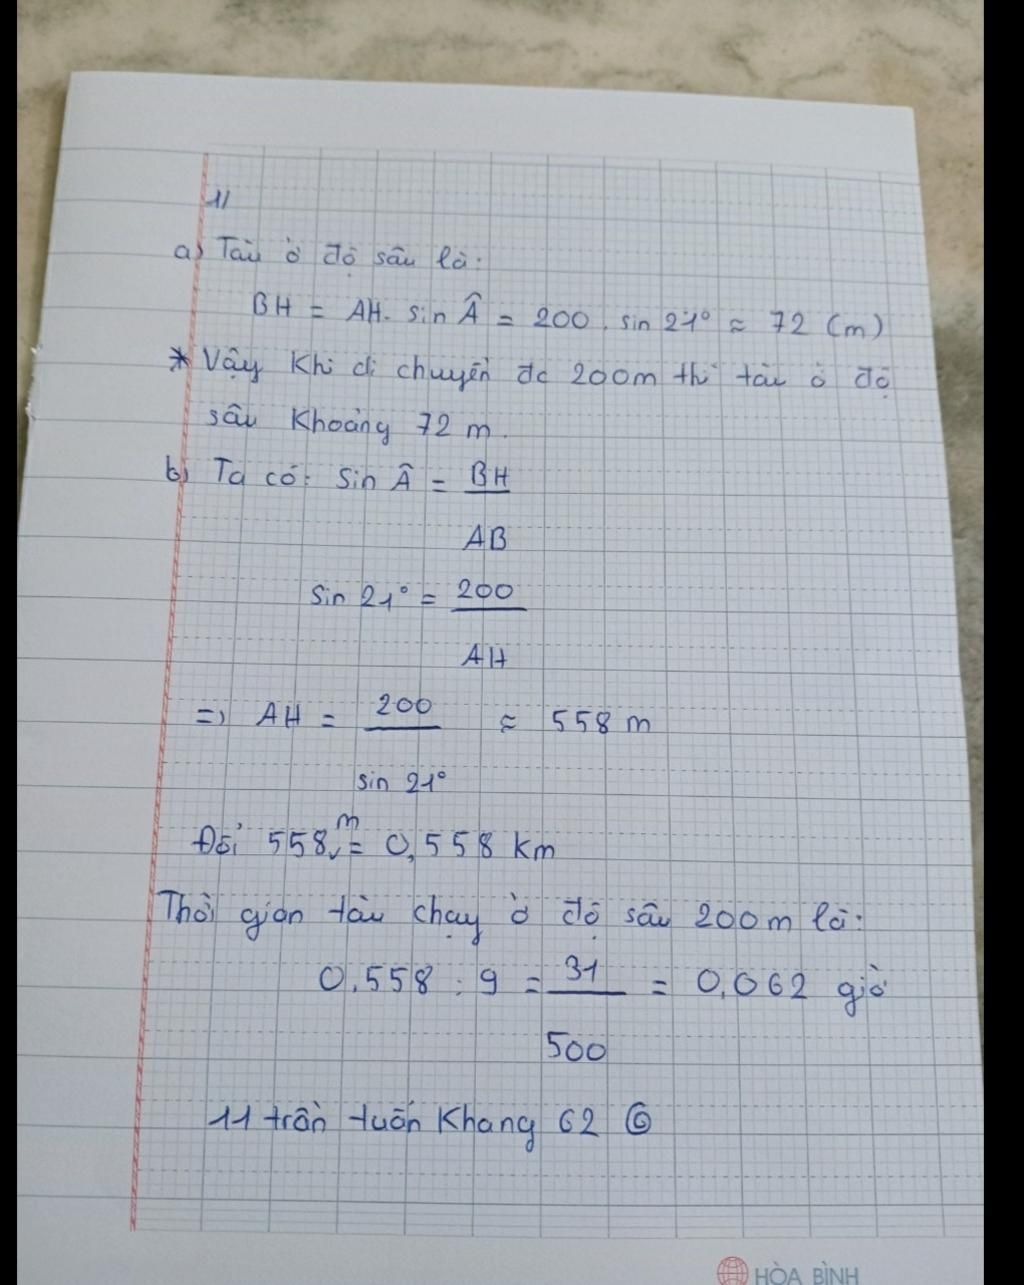 1/
a) Tàu ở độ sâu là:
BH = AH. sin Â = 200 . sin 21° ≈ 72 (m)
* Vậy khi di chuyển đc 200m thì tàu ở độ
sâu khoảng 72 m.
b) Ta có: Sin Â = BH
AB
Sin 21° = 200
AH
=> AH = 200 ≈ 558 m
sin 21°
Đổi 558 m = 0,558 km
Thời gian tàu chạy ở độ sâu 200m là:
0,558 : 9 = 31 = 0,062 giờ
500
11 trần tuấn Khang 62 ⑥
HÒA BÌNH